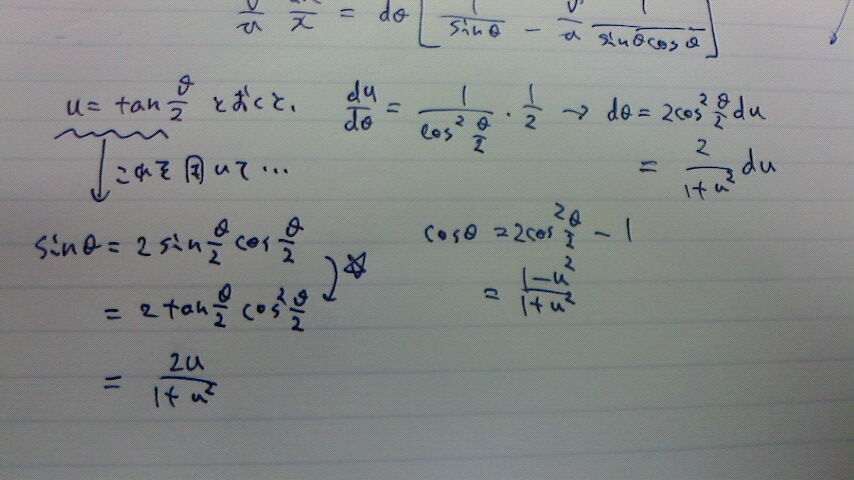 = dθ [ 1/sinθ - v/u 1/sinθcosθ ]
u = tan θ/2 とおくと、 du/dθ = 1/cos² θ/2 · 1/2 → dθ = 2cos² θ/2 du
= 2/1+u² du
これを用いて…
sinθ = 2 sin θ/2 cos θ/2 cosθ = 2cos² θ/2 - 1
= 2 tan θ/2 cos² θ/2 = 1-u²/1+u²
= 2u/1+u²